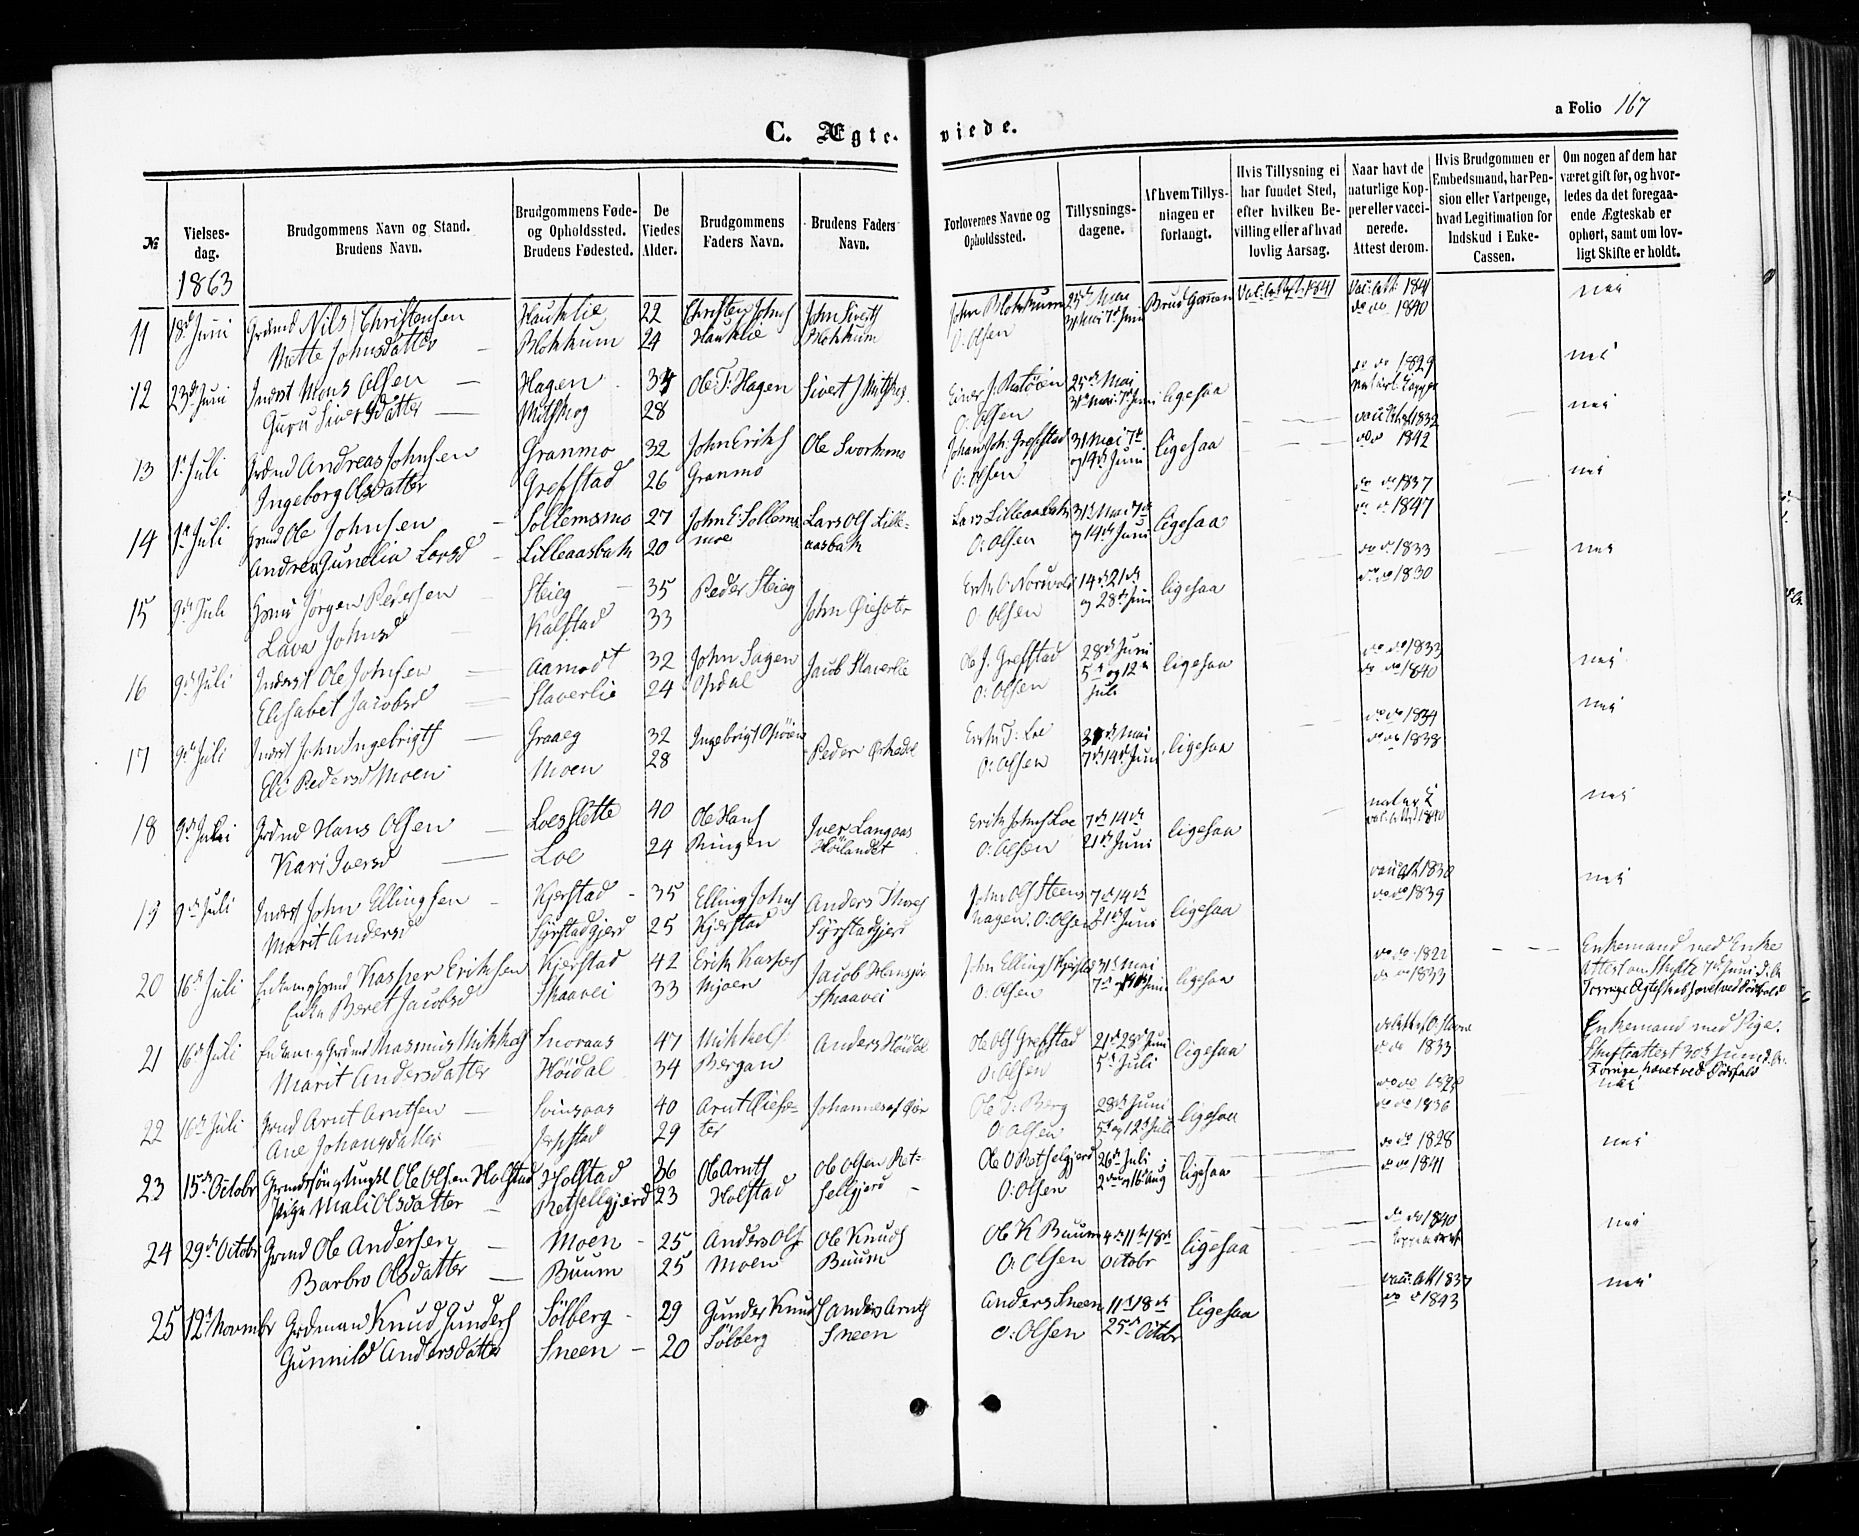 a Folio 167
C. Ægte- viede.
№
Vielses-dag.
Brudgommens Navn og Stand. Brudens Navn.
Brudgommens Føde- og Opholdssted. Brudens Fødested.
De Viedes Alder.
Brudgommens Faders Navn.
Brudens Faders Navn.
Forlovernes Navne og Opholdssted.
Tillysnings-dagene.
Af hvem Tillysningen er forlangt.
Hvis Tillysning ei har fundet Sted, efter hvilken Bevilling eller af hvad lovlig Aarsag.
Naar havt de naturlige Kopper eller vaccinerede. Attest derom.
Hvis Brudgommen er Embedsmand, har Pension eller Vartpenge, hvad Legitimation for Indskud i Enke-Cassen.
Om nogen af dem har været gift før, og hvorledes da det foregaaende Ægteskab er ophørt, samt om lovligt Skifte er holdt.
1863
11 18de Juni Nils Christensen Hauklie 22 Christen Johns John Siverts John Blokkum 25de Mai Brudgommen 1841 nei
Mette Johnsdatter Blokkum 24 Hauklie Blokkum O: Olsen 31 Mai 7de Juni do do 1840
12 23de Juni Inderst Mons Olsen Hagen 34 Ole T: Hagen Sivert J Mitskog 25de Mai ligesaa do do 1829 nei
Guru Siversdatter Mitskog 28 O: Olsen 31te Mai 7de Juni
13 1ste Juli Andreas Johnsen Granmo 32 John Eriks Ole Svorkmo Johan Joh. Grefstad 31 Mai 7de ligesaa 1832 nei
Ingeborg Olsdatter Grefstad 26 Granmo O: Olsen og 14de Juni do 1842
14 1ste Juli Ole Johnsen Sollemsmo 27 John E: Sollems Lars Ols Lille- Lars Lilleaasbak 31te Mai 7de ligesaa do do 1837 nei
Andrea Gunelia Larsd Lilleaasbak 20 moe aasbak O: Olsen og 14de Juni do do 1847
15 9de Juli Jørgen Pedersen Steieg 35 Peder Steieg John Øiesæter 14de 21de ligesaa do do 1833 nei
Lava Johnsd Kalstad 33 O: Olsen og 28de Juni do do 1830
16 9de Juli Inderst Ole Johnsen Aamodt 32 John Sagen Jacob Slaverlie Ole J. Grefstad 28de Juni ligesaa do do 1833 nei
Elisabet Jacobsd Slaverlie 24 Opdal O: Olsen 5te og 12te Juli do do 1840
17 9de Juli Inderst John Ingebrigts Graaeg 32 Ingebrigt Peder Erik T: Loe 31te Mai ligesaa do do 1834 nei
Eli Pedersd Moen Moen 28 O: Olsen 7de 14de Juni do do 1838
18 9de Juli Hans Olsen Loesslette 40 Ole Hans Iver Langaas Erik Johns Loe 7de 14de ligesaa nei
Kari Iversd Loe 24 Ringen Høilandet O: Olsen 21de Juni 1840
19 9de Juli Inderst John Ellingsen Kjerstad 35 Elling Johns Anders John Ols Steens- 7de 14de ligesaa 1830 nei
Marit Andersd Syrstadgjerd 25 Kjerstad Syrstadgjerd hagen. O: Olsen 21de Juni do do 1839
20 16de Juli Kasper Eriksen Kjerstad 42 Erik Kaspers Jacob John Ellings Kjerstad 31te Mai ligesaa do do 1822 Enkemand med Enke
Enke Beret Jacobsd Skaavei 33 Mjoen Skaavei O: Olsen 7de og 14de Juni do do 1833 Attest om Skifte 7de Juni d: A: Forrige Ægteskab hævet ved Dødsfald
21 16de Juli Rasmus Mikkels Snoraas 47 Mikkels Anders Høidal Ole Ols Grefstad 21de 28de Juni ligesaa Enkemand med Pige.
Marit Andersdatter Høidal 34 Bergan O: Olsen 5te Juli do do 1833 Skifteattest 30te Juni d. A. Forrige hævet ved Dødsfald
22 16de Juli Arnt Arntsen Svinsaas 40 Arnt Øiesæ- Johannes Ole T: Berg 28de Juni ligesaa nei
Ane Johansdatter 29 ter O: Olsen 5te og 12te Juli do do 1836
23 15de Octobr Ole Olsen Holstad Holstad 36 Ole Arnts Ole Olsen Ret- Ole O Retselgjerd 26de Juli ligesaa do do 1828 nei
Pige Mali Olsdatter Retsellgjerd 23 Holstad sellgjerd O: Olsen 2den og 16de Aug do do 1841
24 29de Octobr Grmd Ole Andersen Moen 25 Anders Ols Ole Knuds Ole K Buum 4de 11te 18de ligesaa do do 1840 nei
Barbro Olsdatter Buum 25 Moen Buum O: Olsen Octobr
25 12te Novembr Grdmand Knud Gunders Sølberg 29 Gunder Knuds Anders Arnts Anders Sneen 11te 18de ligesaa vacc: att 1837 nei
Gunnild Andersdatter Sneen 20 Sølberg Sneen O: Olsen 25de Octobr do do 1843